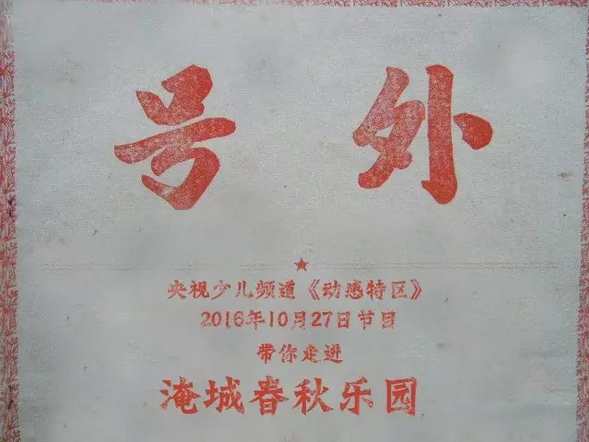 号外
央视少儿频道《动感特区》
2016年10月27日节目
带你走进
淹城春秋乐园